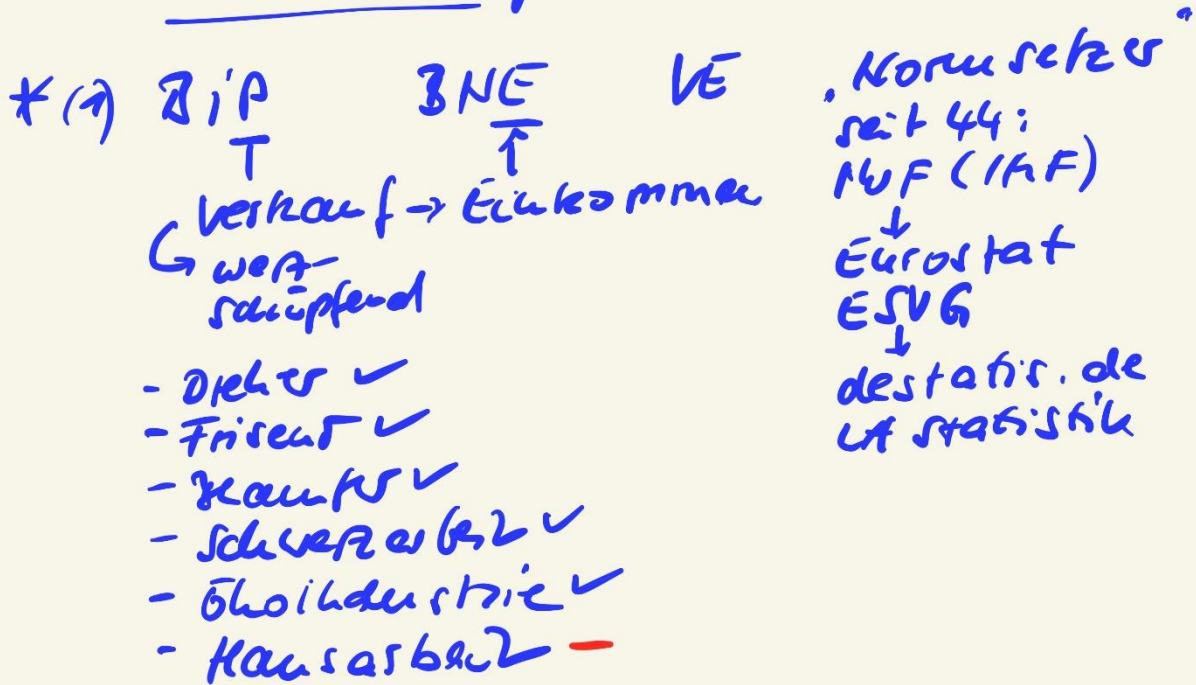 * (1) BIP BNE VE
Verkauf → Einkommen
wert-
schöpfend
- Dreher ✓
- Friseur ✓
- ✓
- Schwarzarbeit ✓
- Ökoindustrie ✓
- Hausarbeit –
• Normsetzer
seit 44:
IWF (IMF)
↓
Eurostat
ESVG
↓
destatis.de
LA Statistik